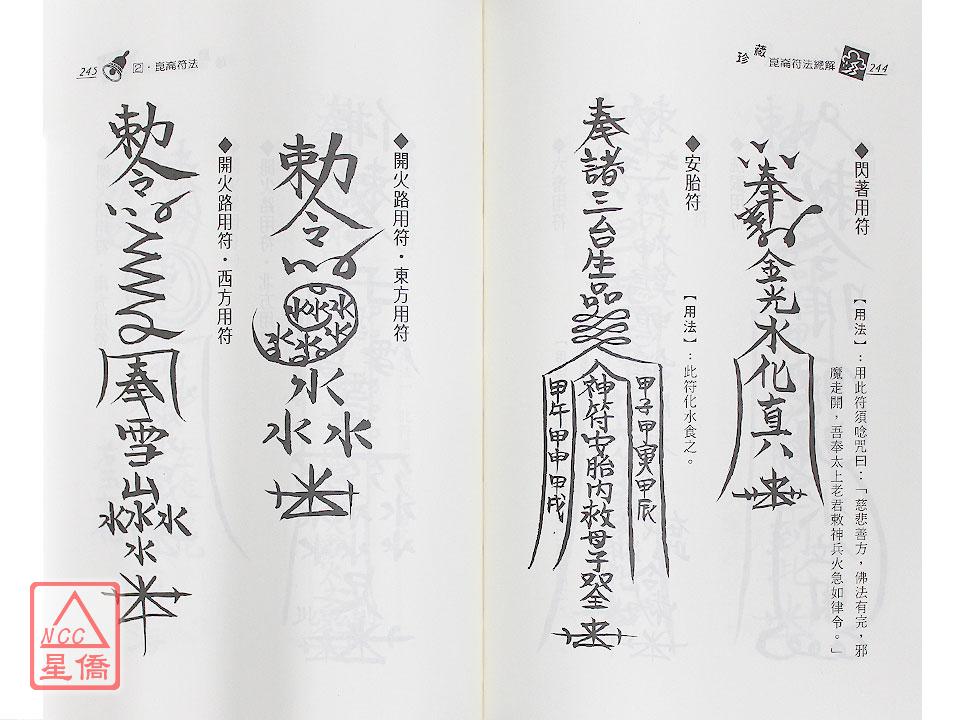 珍藏崑崙符法總解 244
◆閃著用符
【用法】:用此符須唸咒曰:「慈悲善方,佛法有完,邪
魔走開,吾奉太上老君敕神兵火急如律令。」
奉
金光水化真
◆安胎符
【用法】:此符化水食之。
奉諸三台生品
甲子甲寅甲辰
神符安胎內救母子
甲午甲申甲戌
245 2・崑崙符法
◆開火路用符・東方用符
勅令
水水水
水
水水水
水
水水
◆開火路用符・西方用符
勅令
奉
雪山
水水水
水
NCC
星僑